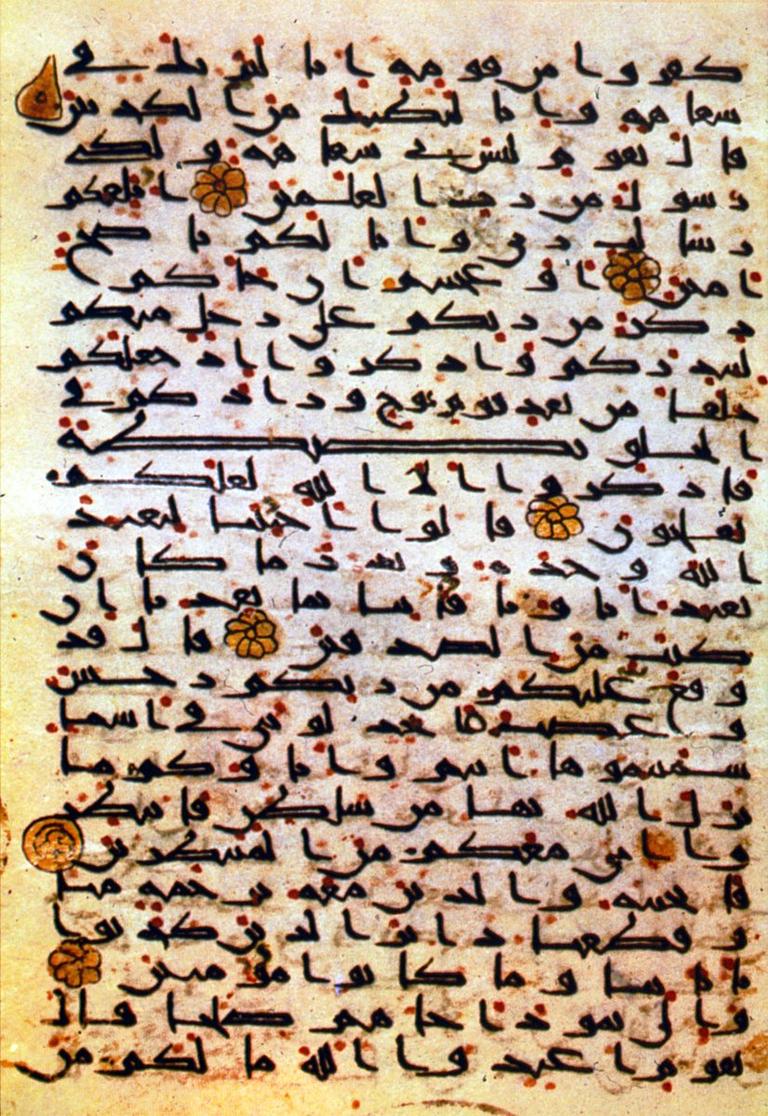 كفروا من قومه انا لنريك في
سفاهه وانا لنظنك من الكذبين
قال يقوم ليس بي سفاهه ولكني
رسول من رب العلمين ابلغكم
رسلت ربي وانا لكم ناصح
امين اوعجبتم ان جاكم
ذكر من ربكم على رجل منكم
لينذركم واذكروا اذ جعلكم
خلفا من بعد قوم نوح وزادكم في
الخلق بصطه
فاذكروا الا الله لعلكم
تفلحون قالوا اجئتنا لنعبد
الله وحده ونذر ما كان
يعبد اباونا فاتنا بما تعدنا ان
كنت من الصدقين قال قد
وقع عليكم من ربكم رجس
وغضب اتجدلونني في اسما
سميتموها انتم واباوكم ما
نزل الله بها من سلطن فانتظر
وا اني معكم من المنتظرين
فانجينه والذين معه برحمه منا
وقطعنا دابر الذين كذبوا
بايتنا وما كانوا مومنين
والى ثمود اخاهم صلحا قال
يقوم اعبدوا الله ما لكم من